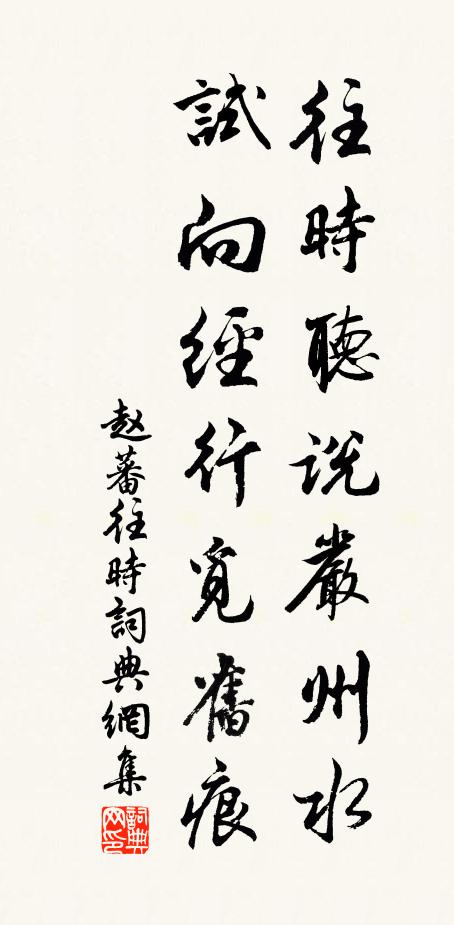 往時聽說嚴州水
試向經行覓舊痕
赵蕃往時詞典網集
詞典网印